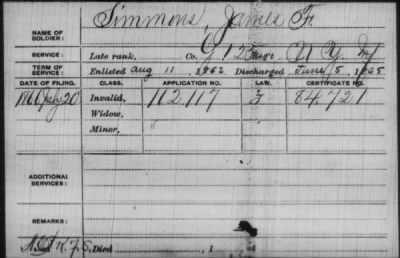 NAME OF SOLDIER: Simmons, James H.
SERVICE: Late rank, Co. G 12 Regt. N.Y.
TERM OF SERVICE: Enlisted Aug 11, 1862 Discharged June 5, 1865
DATE OF FILING. CLASS. APPLICATION NO. LAW. CERTIFICATE NO.
July 20 Invalid, 112.117 84.721
Widow,
Minor,
ADDITIONAL SERVICES:
REMARKS:
Died , 1